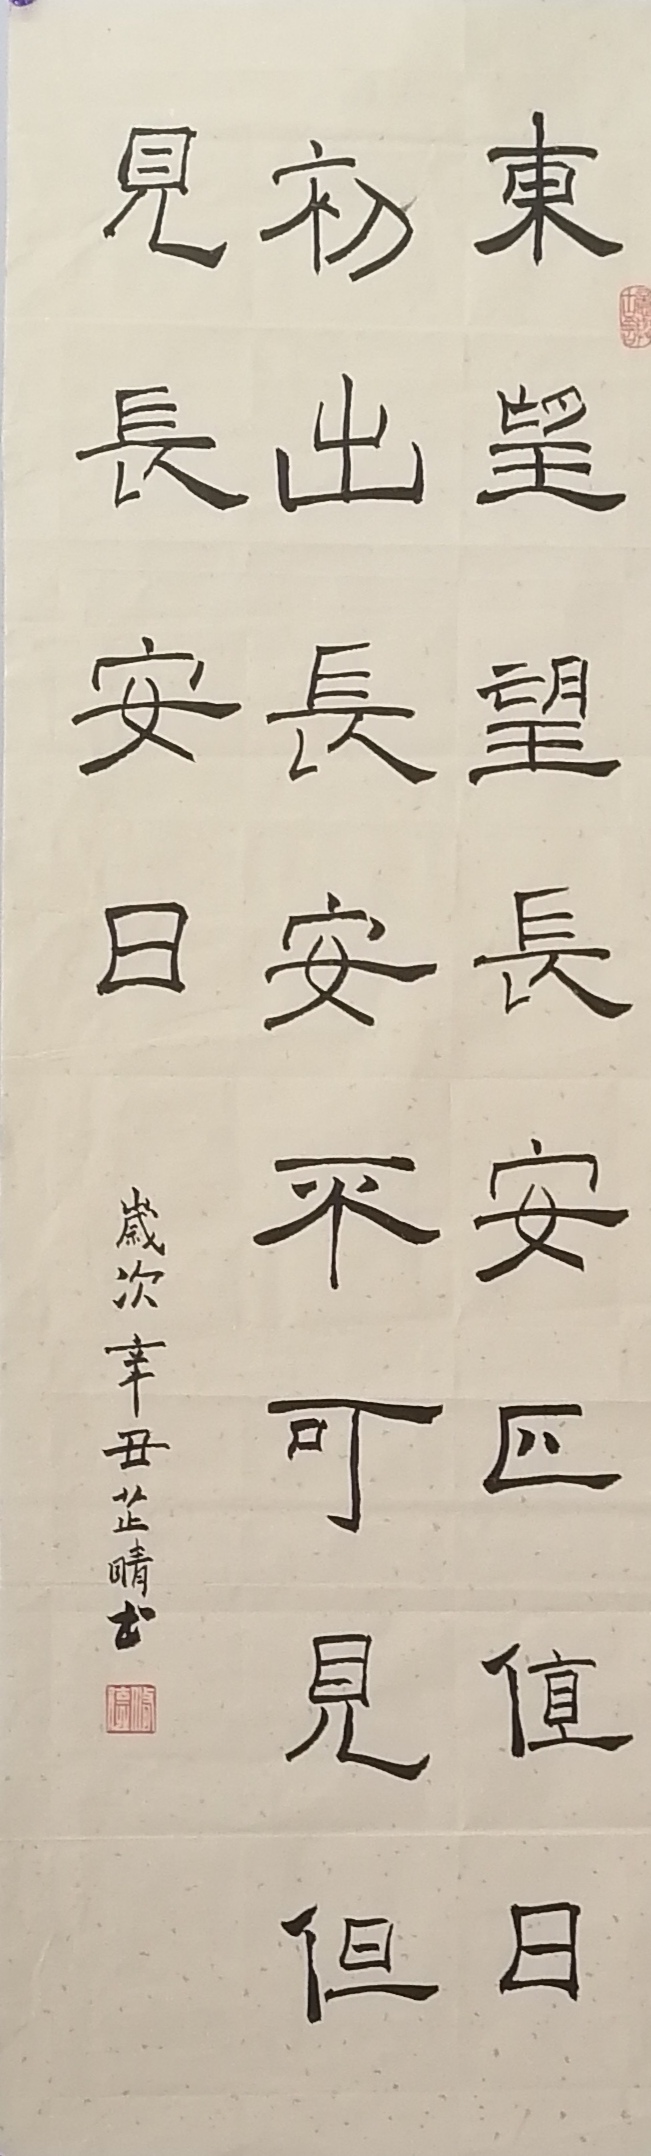 東望望長安正值日
初出長安不可見但
見長安日
歲次辛丑芷晴书